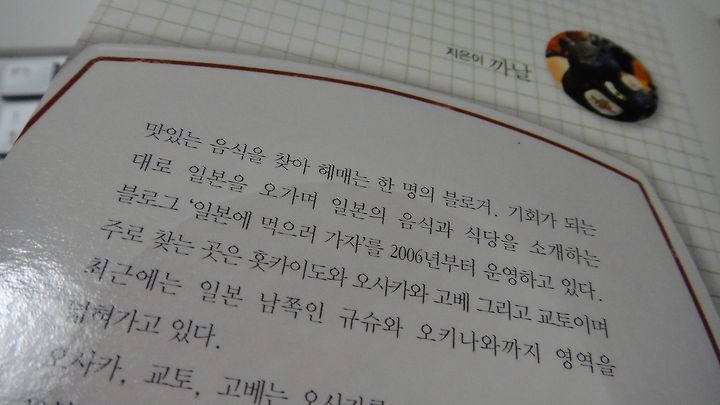 지은이 까날
맛있는 음식을 찾아 헤매는 한 명의 블로거. 기회가 되는
대로 일본을 오가며 일본의 음식과 식당을 소개하는
블로그 '일본에 먹으러 가자'를 2006년부터 운영하고 있다.
주로 찾는 곳은 홋카이도와 오사카와 고베 그리고 교토이며
최근에는 일본 남쪽인 규슈와 오키나와까지 영역을
넓혀가고 있다.
오사카, 교토, 고베는